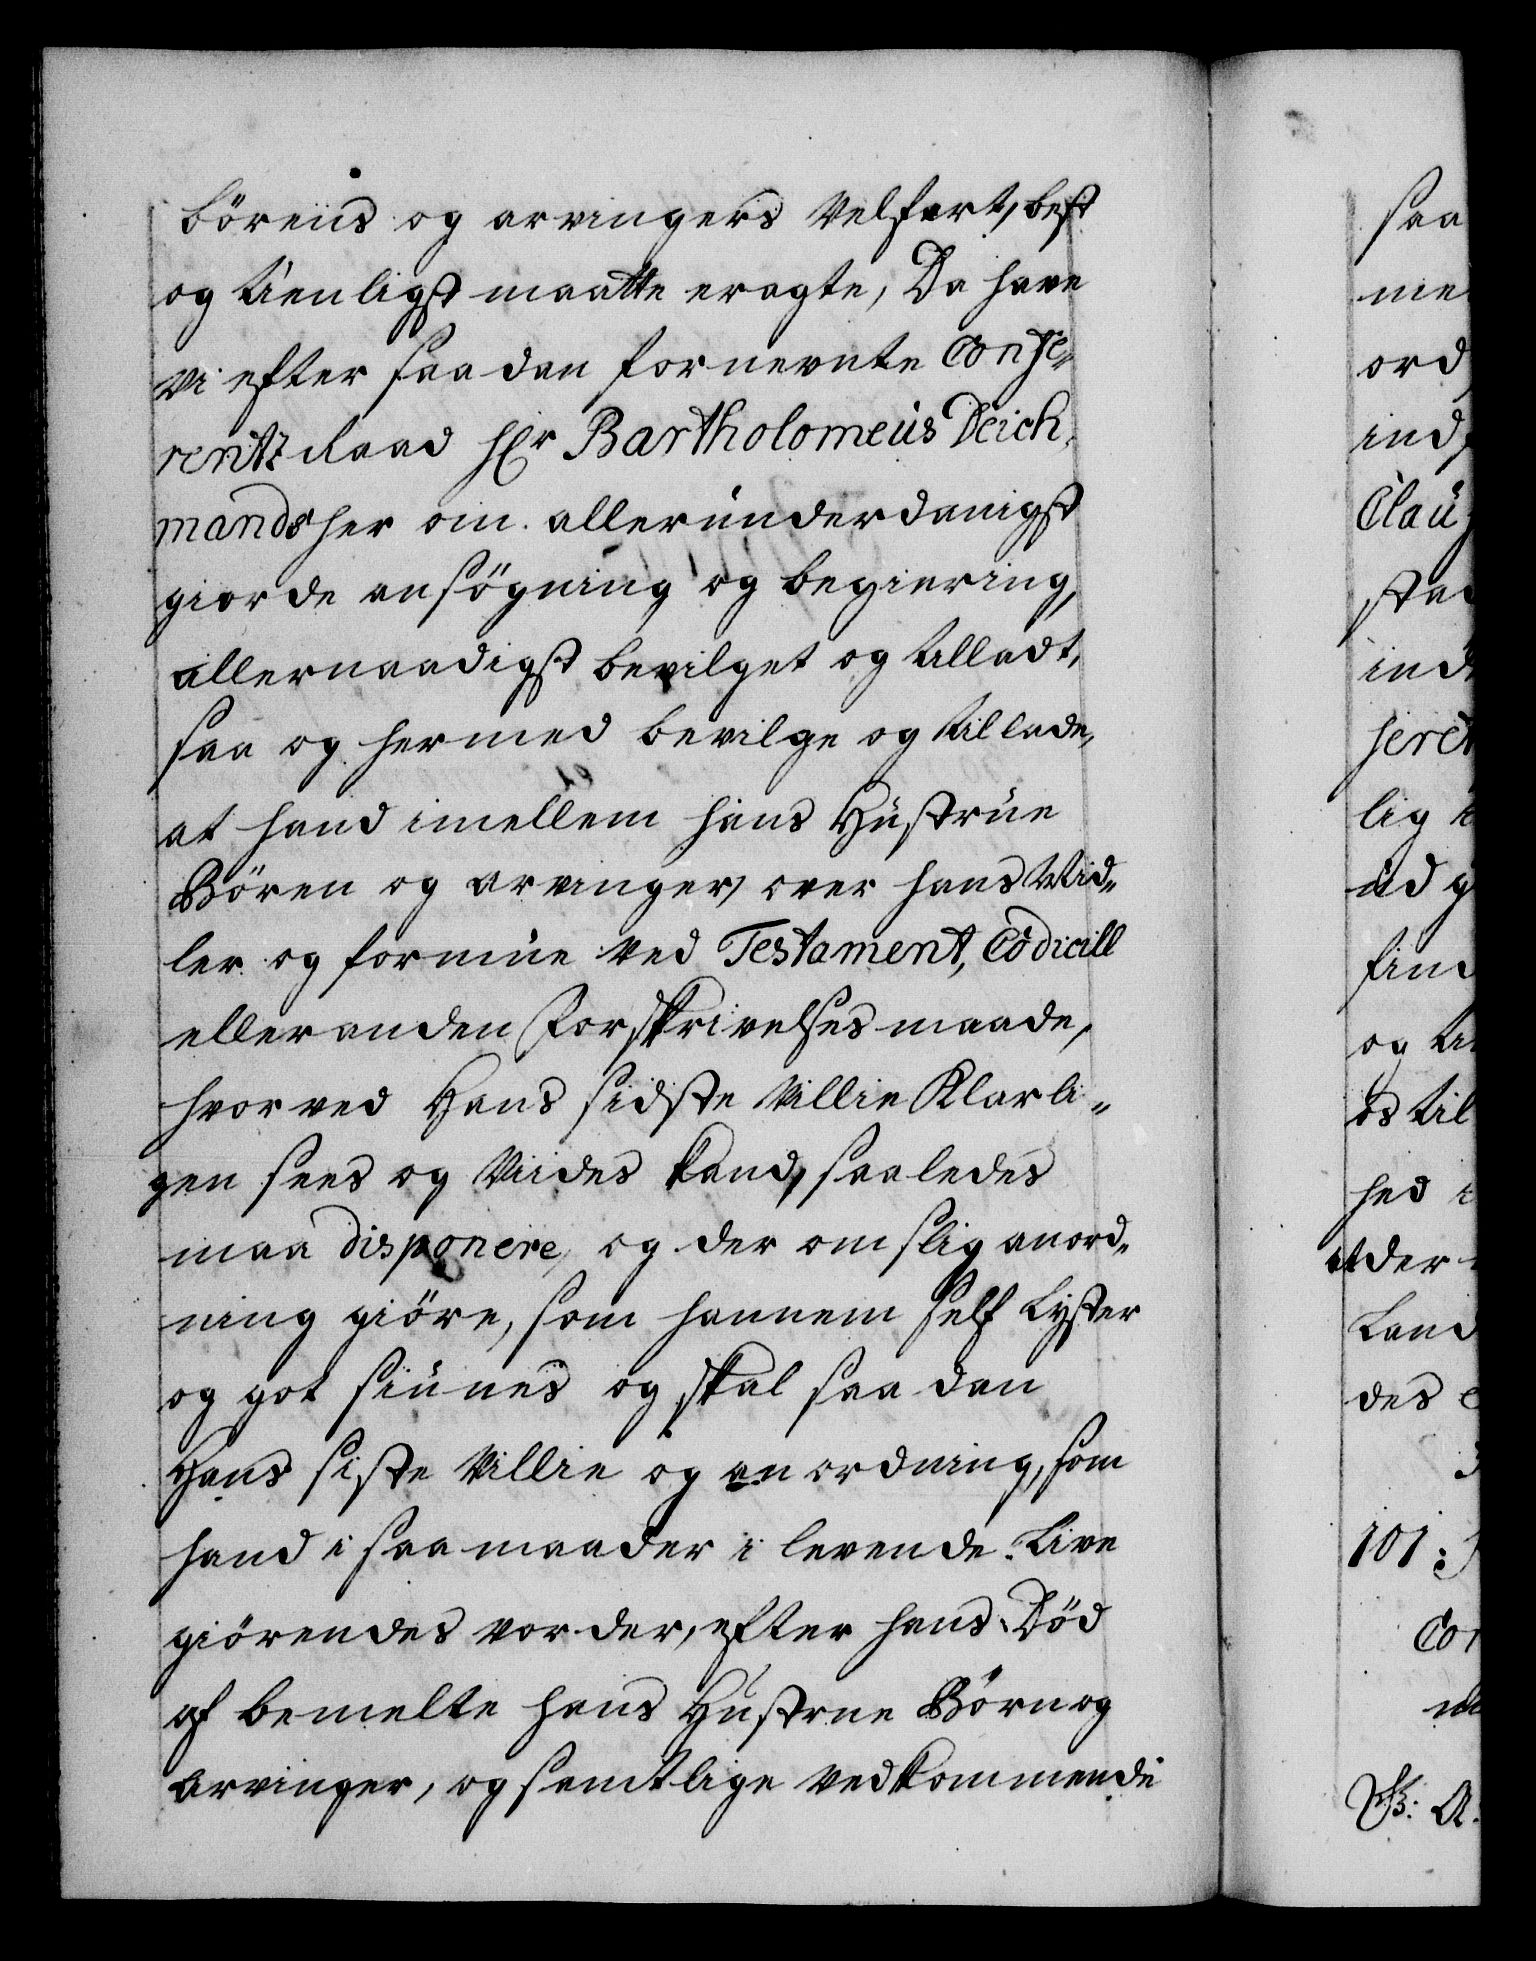 börens og arvingers Velfert, best
og tienligst maatte eragte, Da have
vi efter saadan fornevnte Confe-
rentz Raad Hr Bartholomeus Deich-
mands her om allerunderdanigst
giorde ansögning og begiering,
allernaadigst bevilget og tilladt,
saa og hermed bevilge og tillade,
at hand imellem hans Hustrue
Börn og arvinger, over hans Mid-
ler og formue ved Testament, Codicill
eller anden forskrivelses maade,
hvor ved Hans sidste Villie Klarli-
gen sees og Viides kand, saaledes
maa disponere, og der om slig anord-
ning giöre, som hannem self Lyster
og got siunes og skal saadan
Hans siste Villie og anordning, som
hand i saa maader i levende Live
giörendes vorder, efter hans Död
af bemelte hans Hustrue Börn og
arvinger, og samtlige vedkommende
saa
ord
ind
Clau
stad
ind
lig
ud g
find
og til
os til
hed
at der
Land
des
101:
Con